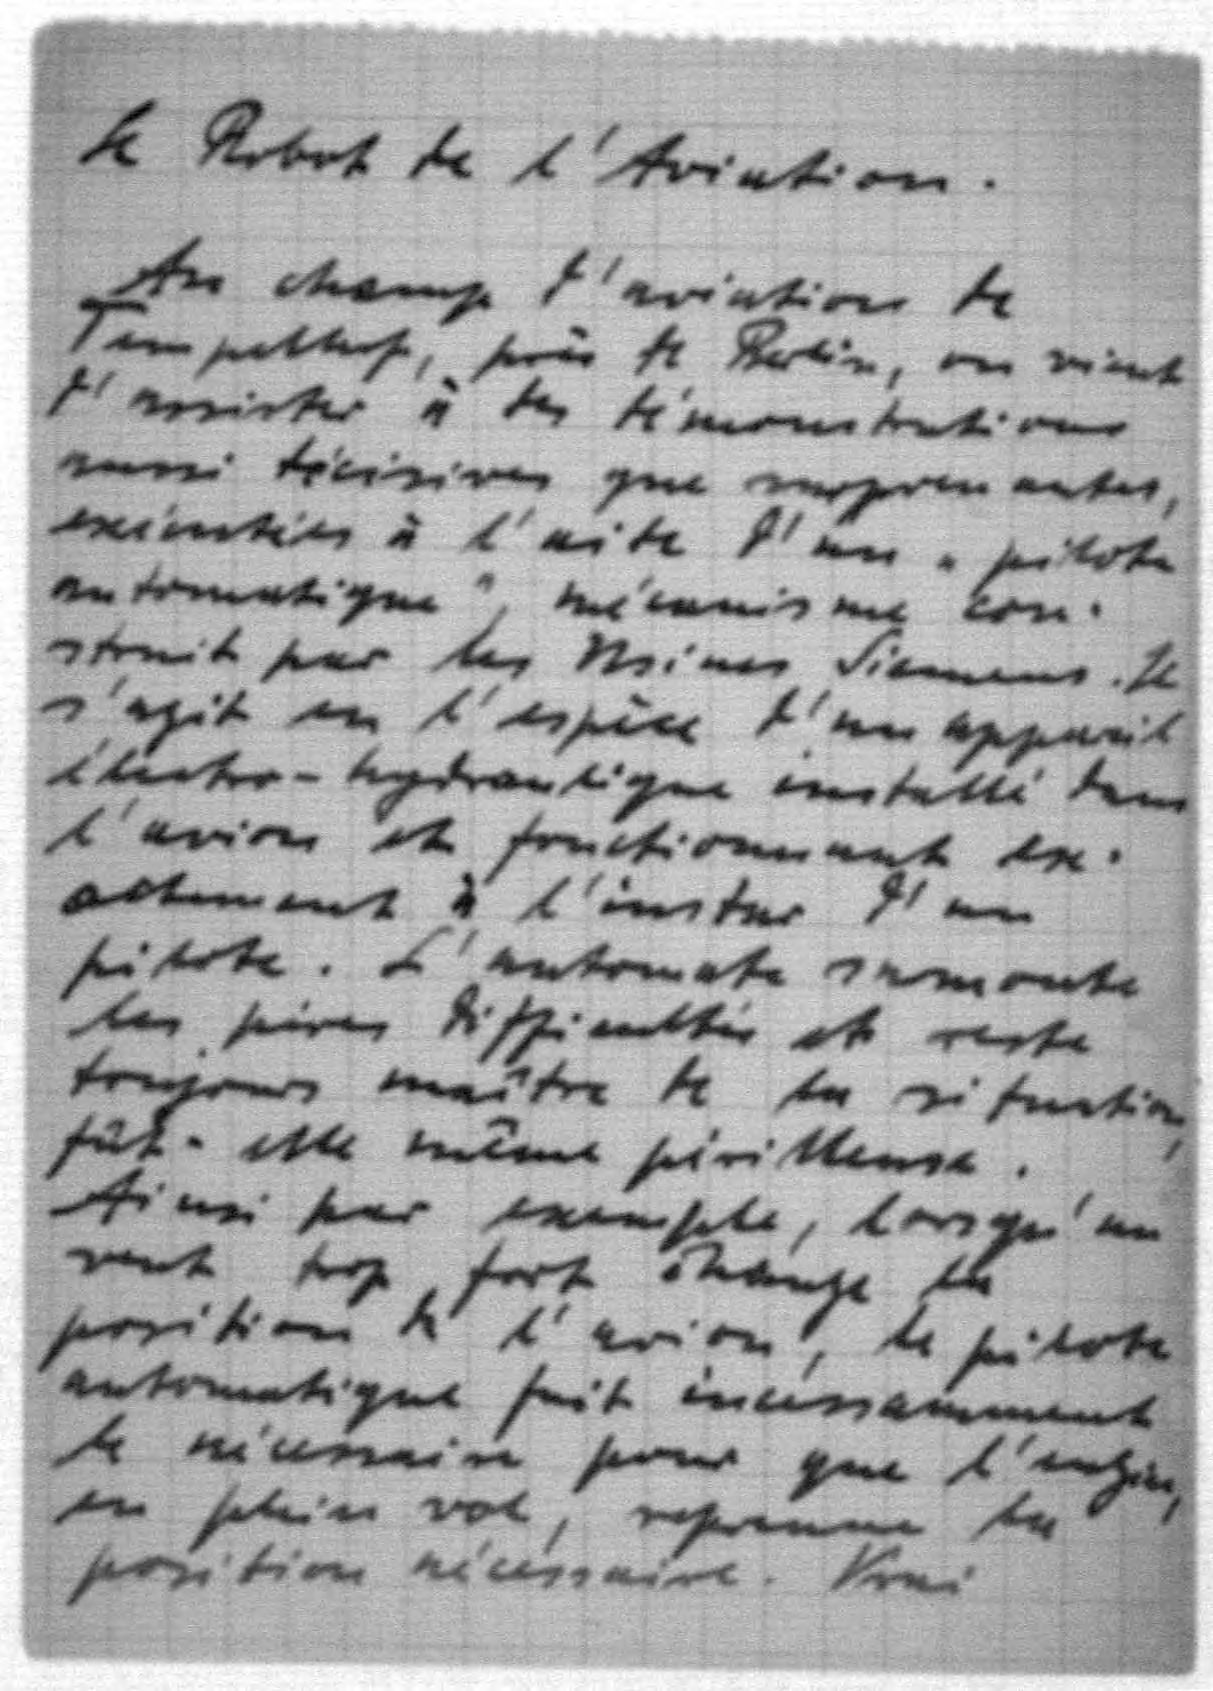 Le Robot de l'Aviation.
Au champ d'aviation de
Tempelhof, près de Berlin, on vient
d'assister à des démonstrations
aussi décisives que surprenantes,
exécutées à l'aide d'un „pilote
automatique", mécanisme con-
struit par les Usines Siemens. Il
s'agit en l'espèce d'un appareil
électro-hydraulique installé dans
l'avion et fonctionnant ex-
actement à l'instar d'un
pilote. L'automate surmonte
les pires difficultés et reste
toujours maître de la situation,
fût-elle même périlleuse.
Ainsi par exemple, lorsqu'un
vent trop fort change la
position de l'avion, le pilote
automatique fait incessamment
le nécessaire pour que l'engin,
en plein vol, reprenne la
position nécessaire. Vrai